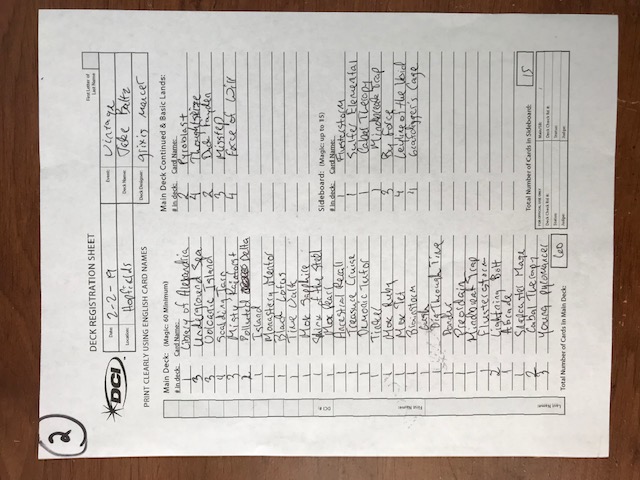 2
DECK REGISTRATION SHEET
First Letter of
Last Name
DCI
Date: 2-2-19
Event: Vintage
Location: Hopfields
Deck Name: Jake Baltz
Deck Designer: grixis mancer
PRINT CLEARLY USING ENGLISH CARD NAMES
Main Deck: (Magic: 60 Minimum)
# in deck: Card Name:
1 Library of Alexandria
3 Underground Sea
3 Volcanic Island
4 Scalding Tarn
3 Misty Rainforst
2 Polluted Delta
1 Island
1 Monastery Mentor
1 Black Lotus
1 Time Walk
1 Mox Sapphire
1 Sphinx of the Steel
1 Mox Pearl
1 Ancestral Recall
1 Treasure Cruise
1 Demonic Tutor
1 Tinker
1 Mox Ruby
1 Mox Jet
1 Brainstorm
1 Gush
1 Dig Through Time
1 Ponder
1 Preordain
1 Mindbreak Trap
1 Flusterstorm
2 Lightning Bolt
1 Arcade
1 Snapcaster Mage
2 Cabal Therapy
3 Young Pyromancer
Total Number of Cards in Main Deck: 60
Main Deck Continued & Basic Lands:
# in deck: Card Name:
2 Pyroblast
4 Thoughtseize
2 Dack Fayden
3 Misstep
4 Force of Will
Sideboard: (Magic: up to 15)
# in deck: Card Name:
1 Flusterstorm
1 Sulfer Elemental
1 Cabal Therapy
1 Mindbreak Trap
3 By Force
4 Leyline of the Void
4 Grafdigger's Cage
Total Number of Cards in Sideboard: 15
FOR OFFICIAL USE ONLY
Main/SB: /
Deck Check Rd #:
Deck Check Rd #:
Status:
Status:
Judge:
Judge:
DCI #:
First Name:
Last Name: